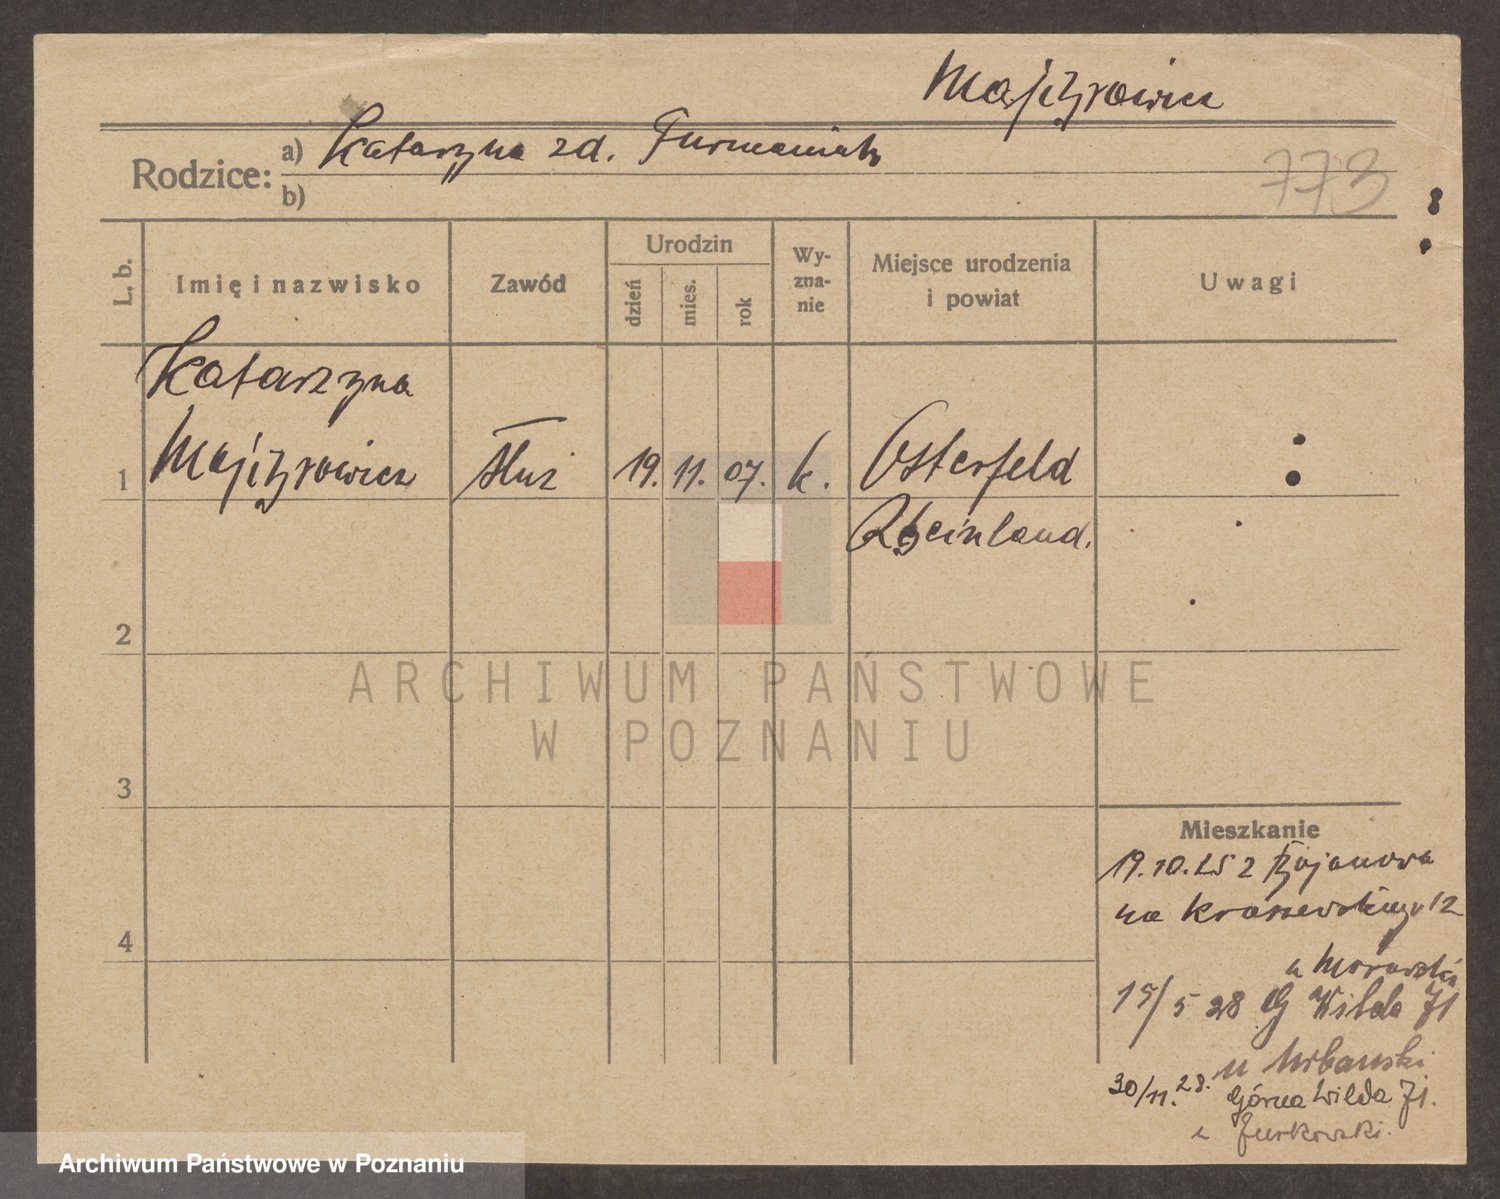 Majcyrowicz
Rodzice: a) Katarzyna zd. Furmaniak
b)
773
L. b.
Imię i nazwisko
Zawód
Urodzin
dzień
mies.
rok
Wy-
zna-
nie
Miejsce urodzenia
i powiat
Uwagi
Katarzyna
1 Majcyrowicz służ 19. 11. 07. k. Osterfeld
Rheinland.
2
3
4
ARCHIWUM PAŃSTWOWE
W POZNANIU
Mieszkanie
19.10.25 z Bojanowa
na Kraszewskiego 12
u Morawski
15/5 28 G Wilda 71
u Urbański
30/11. 28. Górna Wilda 71.
u Jurkowski.
Archiwum Państwowe w Poznaniu